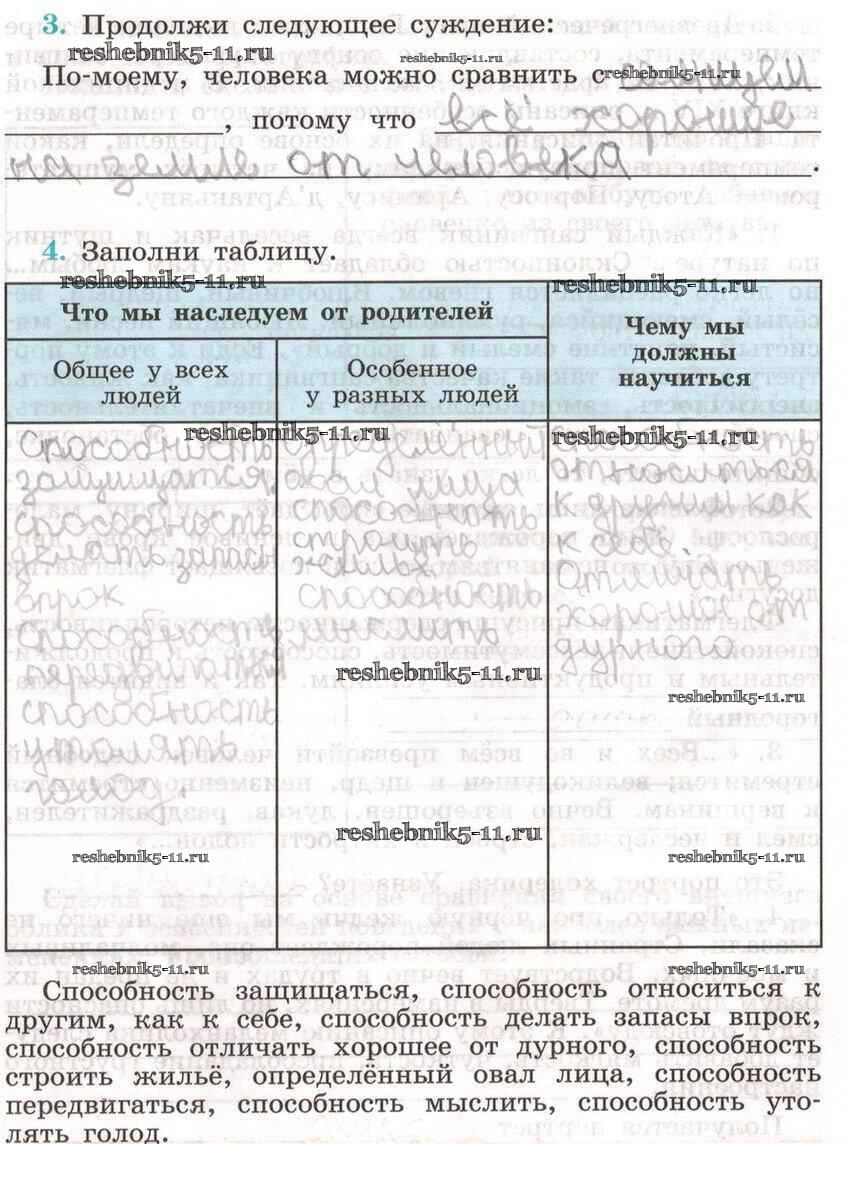 3. Продолжи следующее суждение:
reshebnik5-11.ru
reshebnik5-11.ru
По-моему, человека можно сравнить с солнцем
reshebnik5-11.ru
, потому что всё хорошее
на земле от человека.
4. Заполни таблицу.
reshebnik5-11.ru
reshebnik5-11.ru
Что мы наследуем от родителей
Чему мы должны научиться
Общее у всех людей
Особенное у разных людей
reshebnik5-11.ru
reshebnik5-11.ru
способность
защищаться,
способность
делать запасы
впрок
способность
передвигаться
способность
утолять
голод.
определённый
овал лица
способность
строить
жильё
способность
мыслить
способность
относиться
к другим как
к себе.
отличать
хорошее от
дурного
reshebnik5-11.ru
reshebnik5-11.ru
reshebnik5-11.ru
reshebnik5-11.ru
reshebnik5-11.ru
reshebnik5-11.ru
reshebnik5-11.ru
Способность защищаться, способность относиться к
другим, как к себе, способность делать запасы впрок,
способность отличать хорошее от дурного, способность
строить жильё, определённый овал лица, способность
передвигаться, способность мыслить, способность уто-
лять голод.